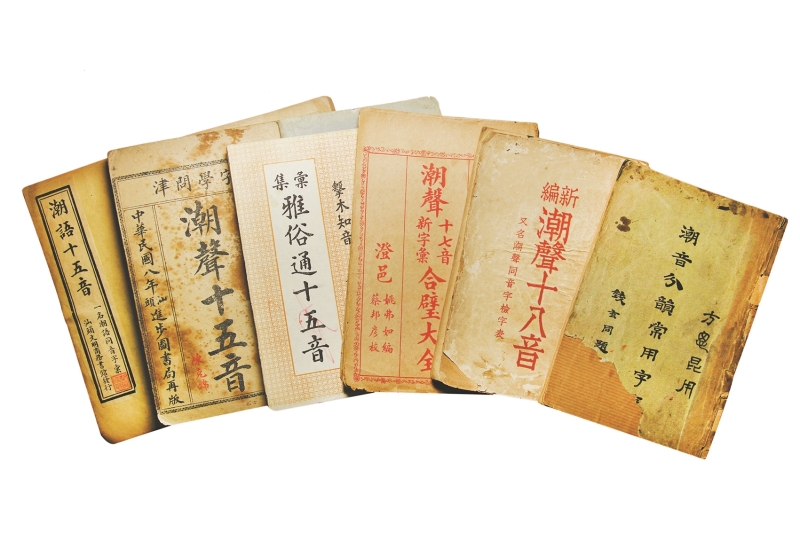 潮語十五音
一名潮語同音字彙
汕頭文明商務書館發行
津問學字
潮聲十五音
中華民國八年汕頭進步圖書局再版
擊木知音
彙集
雅俗通十五音
潮聲
十七音
新字彙
合璧大全
澄邑
姚弗如編
蔡邦彥校
新編
潮聲十八音
又名潮聲同音字檢字表
方昆用
潮音分韻常用字
錢玄同題